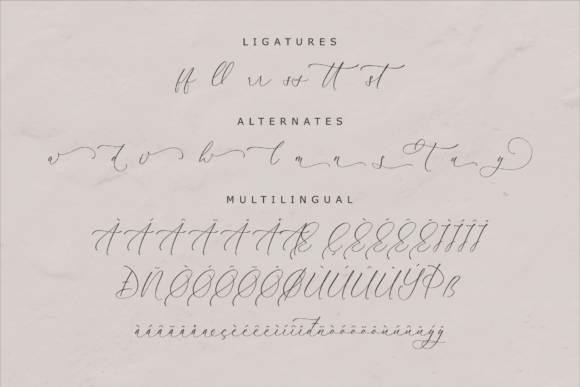 LIGATURES
ff ll rr ss tt st
ALTERNATES
a d v h l m n s t u y
MULTILINGUAL
À Á Â Ã Ä Å Æ Ç È É Ê Ë Ì Í Î Ï
Ð Ñ Ò Ó Ô Õ Ö Ø Ù Ú Û Ü Ý Þ ß
à á â ã ä å æ ç è é ê ë ì í î ï ð ñ ò ó ô õ ö ù ú û ü ý ÿ